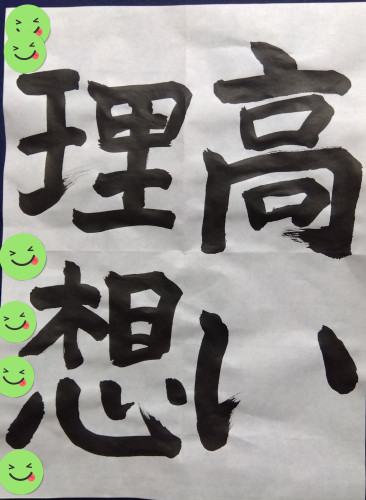 高い
理想